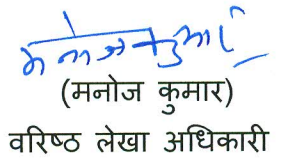 मनोज कुमार
(मनोज कुमार)
वरिष्ठ लेखा अधिकारी